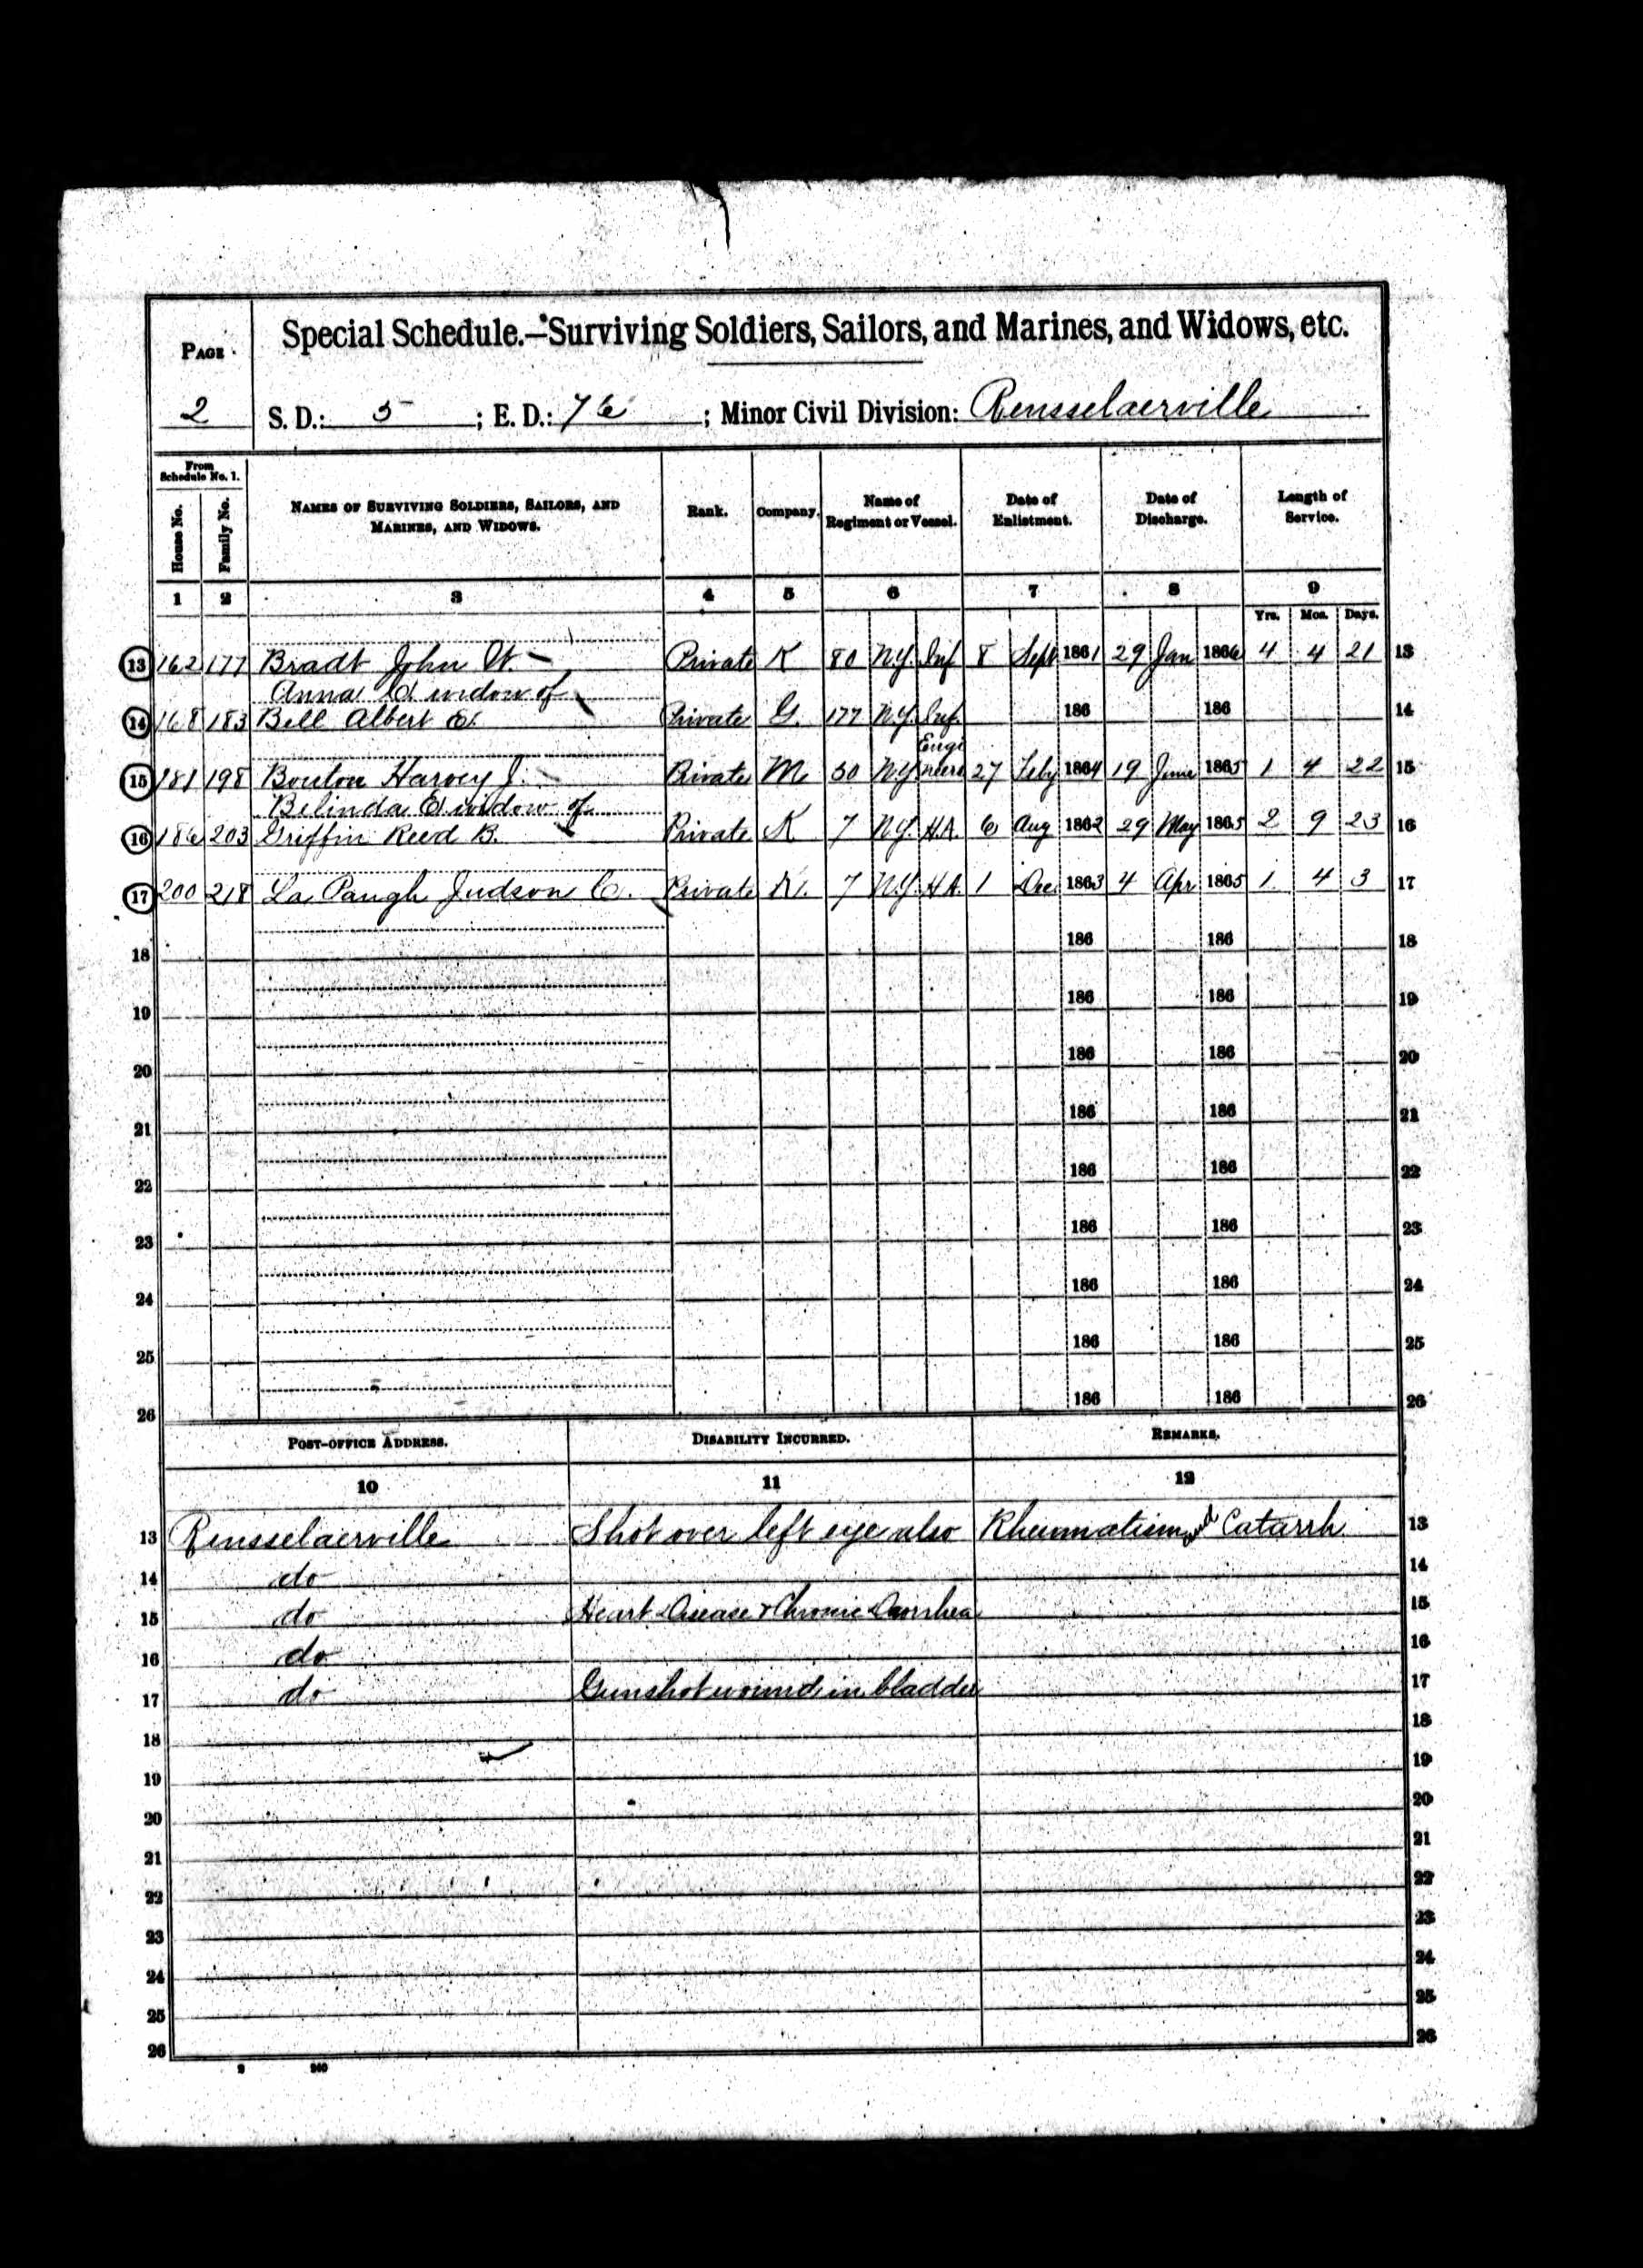 PAGE
2
Special Schedule.—Surviving Soldiers, Sailors, and Marines, and Widows, etc.
S. D.: 5 ; E. D.: 76 ; Minor Civil Division: Rensselaerville
From Schedule No. 1.
House No.
Family No.
NAMES OF SURVIVING SOLDIERS, SAILORS, AND MARINES, AND WIDOWS.
Rank.
Company.
Name of Regiment or Vessel.
Date of Enlistment.
Date of Discharge.
Length of Service.
1 2 3 4 5 6 7 8 9
Yrs. Mos. Days.
13 162 177 Bradt John W. Private K 80 N.Y. Inf 8 Sept 1861 29 Jan 1866 4 4 21 13
Anna C widow of
14 168 183 Bell Albert E. Private G. 177 N.Y. Inf. 186 186 14
15 181 198 Bouton Harvey J. Private M 50 N.Y Engineers 27 Feby 1864 19 June 1865 1 4 22 15
Belinda E widow of
16 186 203 Griffin Reed B. Private K 7 N.Y. H.A. 6 Aug 1862 29 May 1865 2 9 23 16
17 200 218 La Paugh Judson C. Private K. 7 N.Y. H.A. 1 Dec 1863 4 Apr 1865 1 4 3 17
18 186 186 18
19 186 186 19
20 186 186 20
21 186 186 21
22 186 186 22
23 186 186 23
24 186 186 24
25 186 186 25
26 186 186 26
POST-OFFICE ADDRESS. DISABILITY INCURRED. REMARKS.
10 11 12
13 Rensselaerville Shot over left eye also Rheumatism and Catarrh 13
14 do 14
15 do Heart Disease & Chronic Diarrhea 15
16 do 16
17 do Gunshot wound in bladder 17
18 18
19 19
20 20
21 21
22 22
23 23
24 24
25 25
26 26